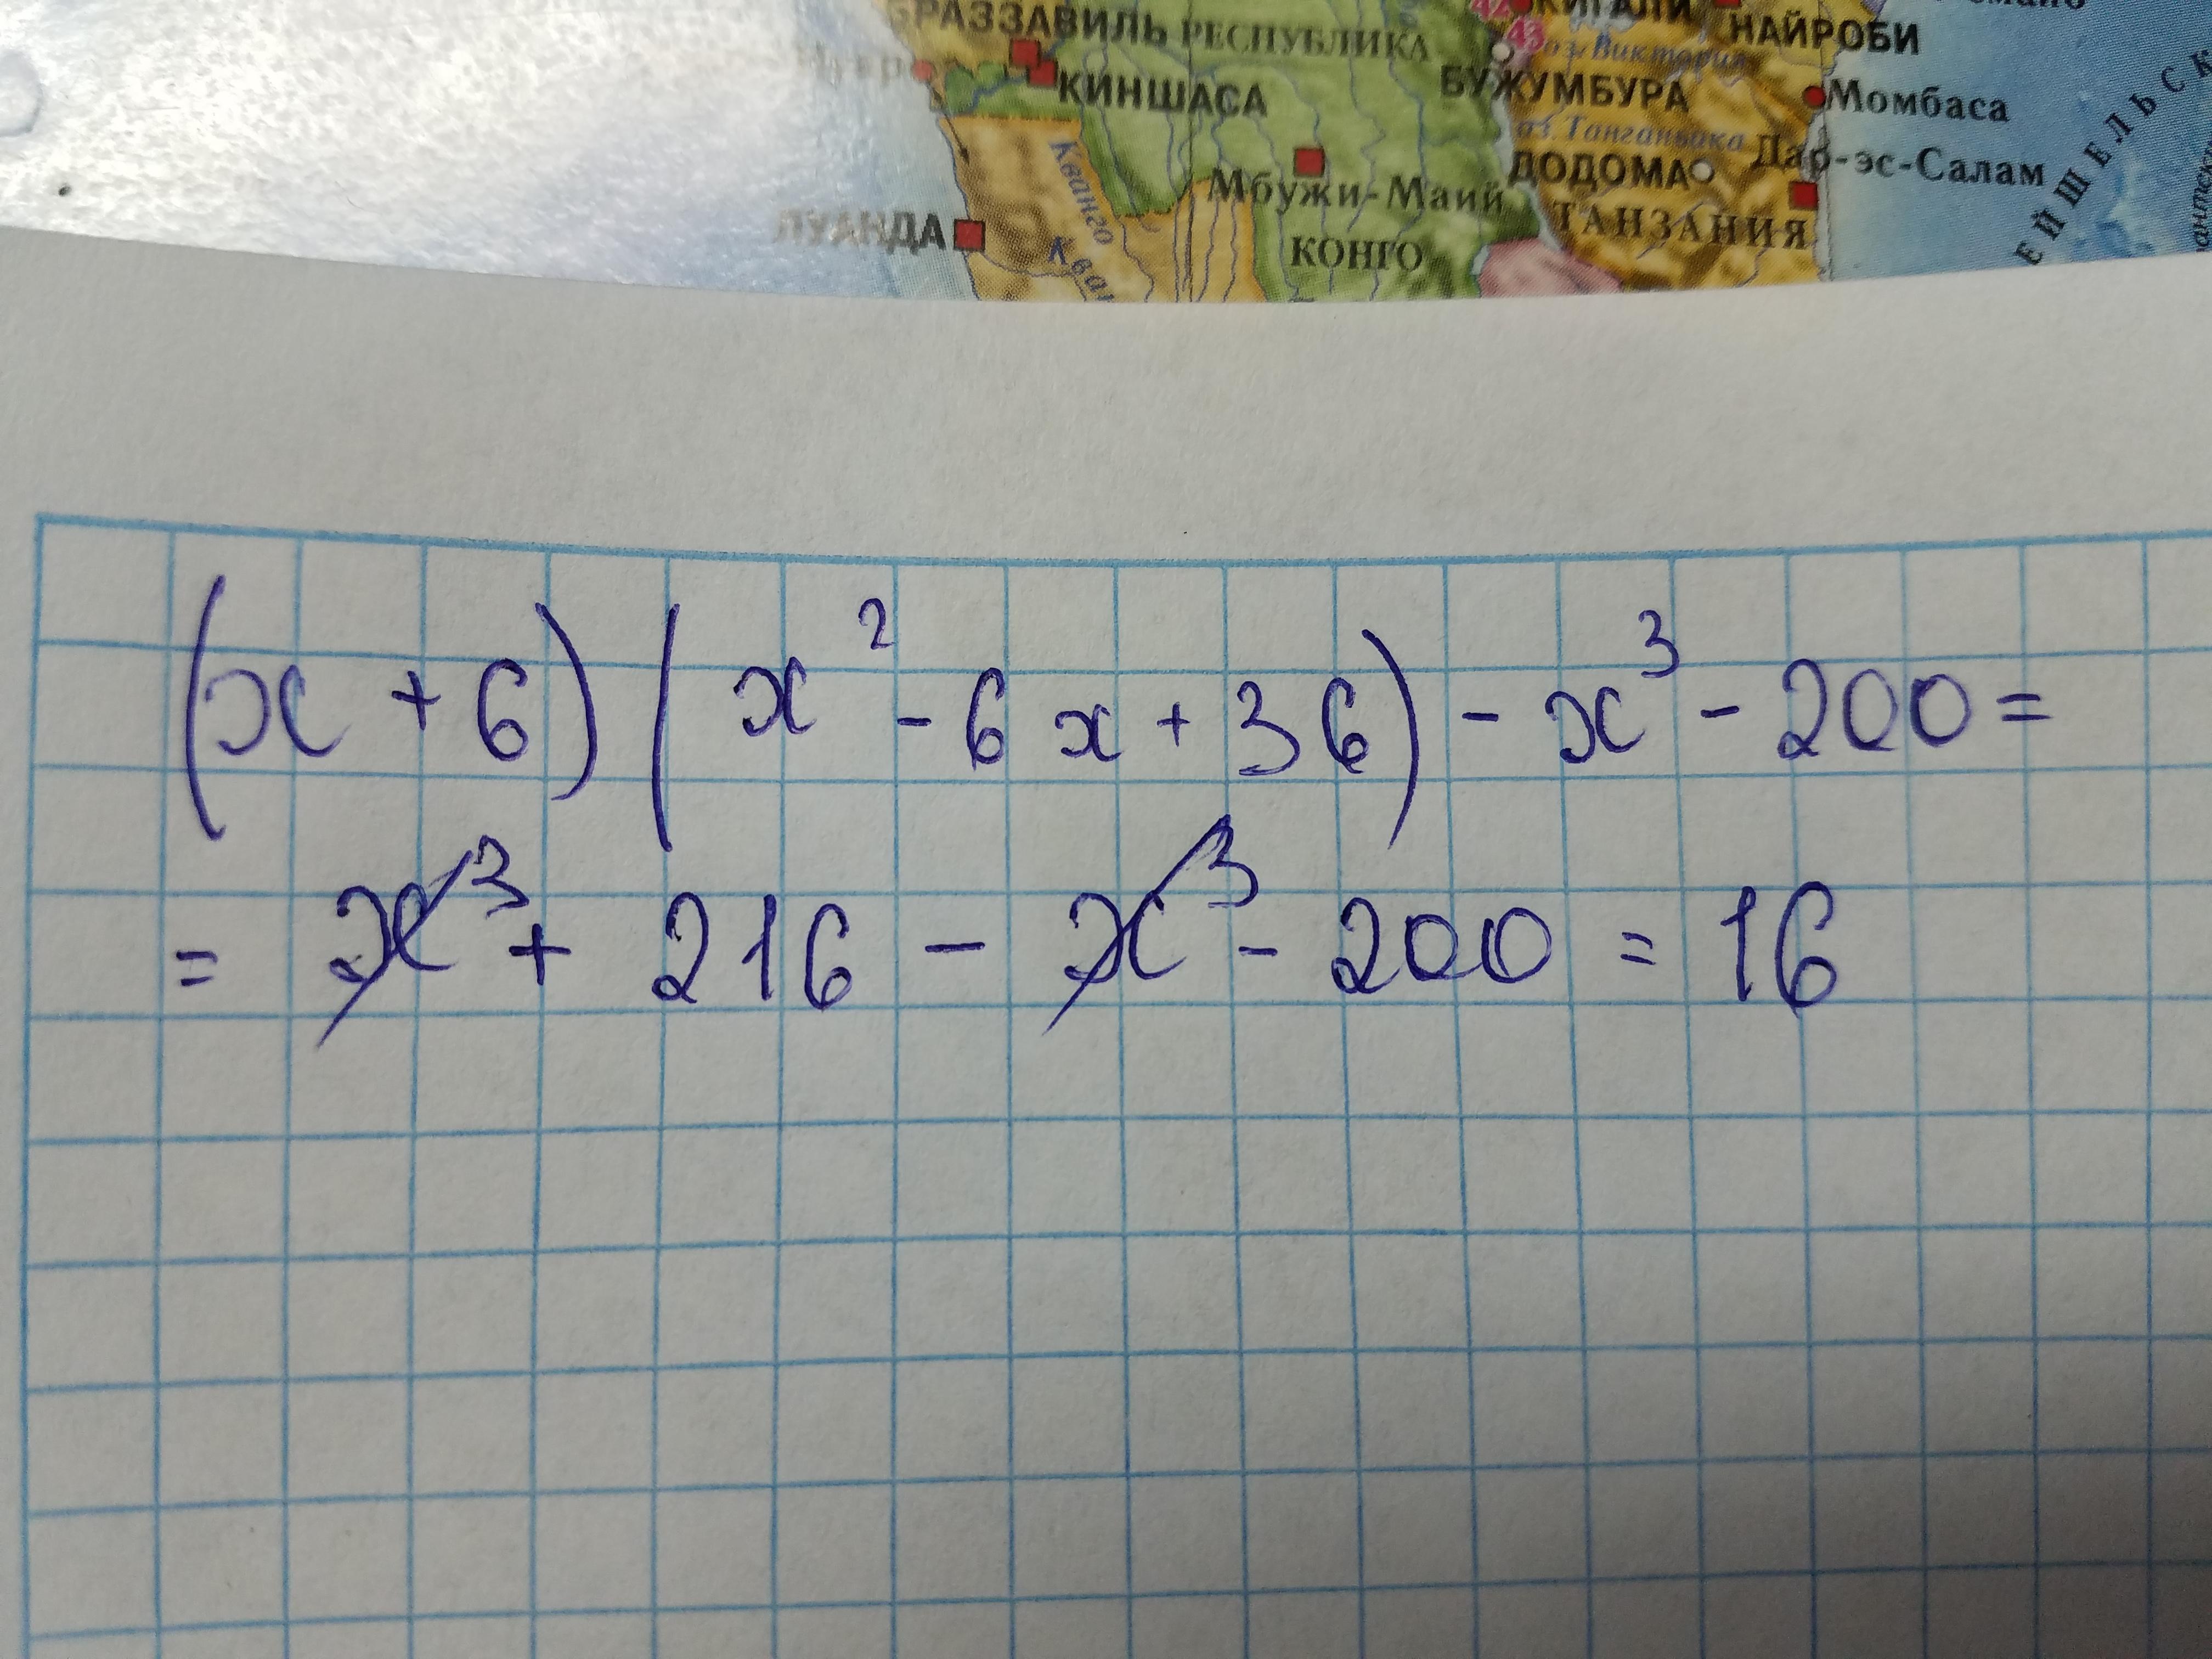 БРАЗЗАВИЛЬ РЕСПУБЛИКА КИГАЛИ НАЙРОБИ
43 оз. Виктория
КИНШАСА БУЖУМБУРА Момбаса
оз. Танганьика
Мбужи-Маий ДОДОМА Дар-эс-Салам
Кванго
ЛУАНДА КОНГО ТАНЗАНИЯ
(x + 6)(x² - 6x + 36) - x³ - 200 =
= x³ + 216 - x³ - 200 = 16